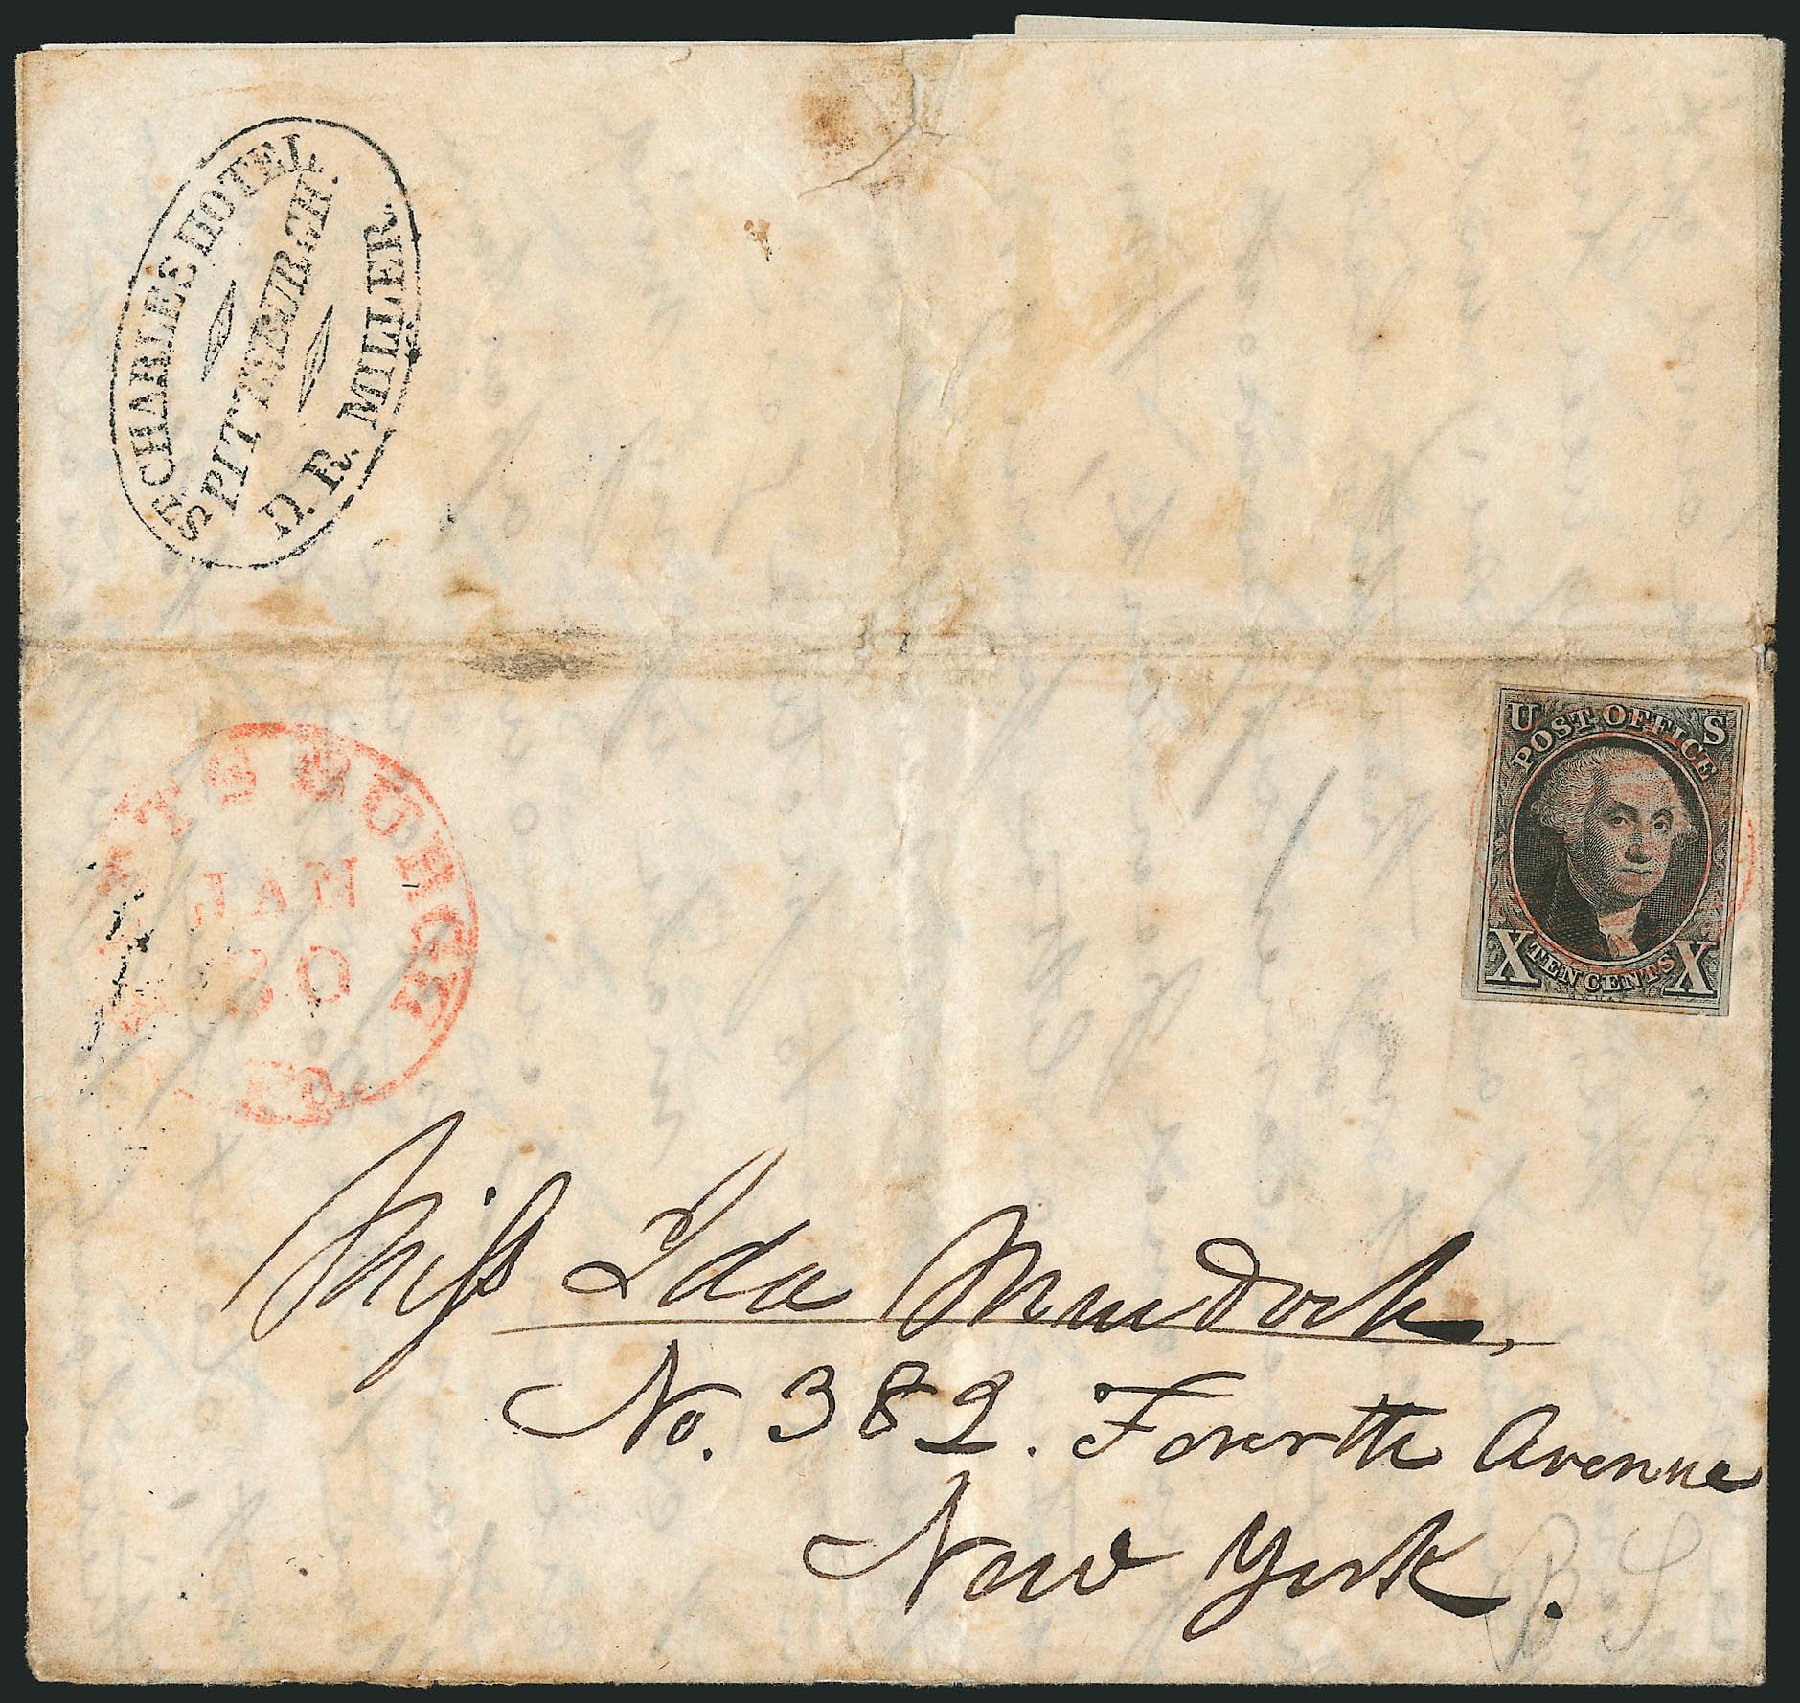 ST. CHARLES HOTEL.
PITTSBURGH.
D. R. MILLER.
PITTSBURGH
JAN
30
U S
POST OFFICE
X TEN CENTS X
Miss Ida Murdock,
No. 382. Fourth Avenue
New York.